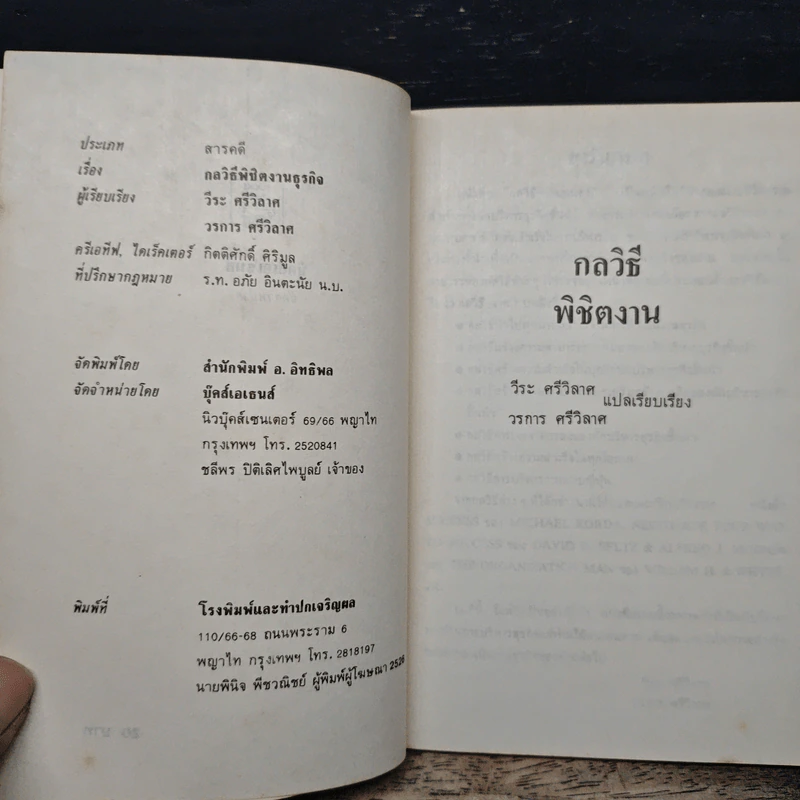 ประเภท สารคดี
เรื่อง กลวิธีพิชิตงานธุรกิจ
ผู้เรียบเรียง วีระ ศรีวิลาศ
วรการ ศรีวิลาศ
ครีเอทีฟ, ไดเร็คเตอร์ กิตติศักดิ์ ศิริมูล
ที่ปรึกษากฎหมาย ร.ท. อภัย อินตะนัย น.บ.
จัดพิมพ์โดย สำนักพิมพ์ อ. อิทธิพล
จัดจำหน่ายโดย บุ๊คส์เอเธนส์
นิวบุ๊คส์เซนเตอร์ 69/66 พญาไท
กรุงเทพฯ โทร. 2520841
ชลีพร ปิติเลิศไพบูลย์ เจ้าของ
พิมพ์ที่ โรงพิมพ์และทำปกเจริญผล
110/66-68 ถนนพระราม 6
พญาไท กรุงเทพฯ โทร. 2818197
นายพินิจ พืชวณิชย์ ผู้พิมพ์ผู้โฆษณา 2526
กลวิธี
พิชิตงาน
วีระ ศรีวิลาศ
แปลเรียบเรียง
วรการ ศรีวิลาศ